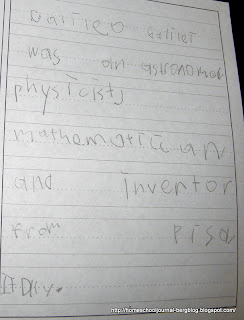 Galileo Galilei
was an astronomer
physicists
mathematician
and inventor
from Pisa
Itay.
http://homeschooljournal-bergblog.blogspot.com/